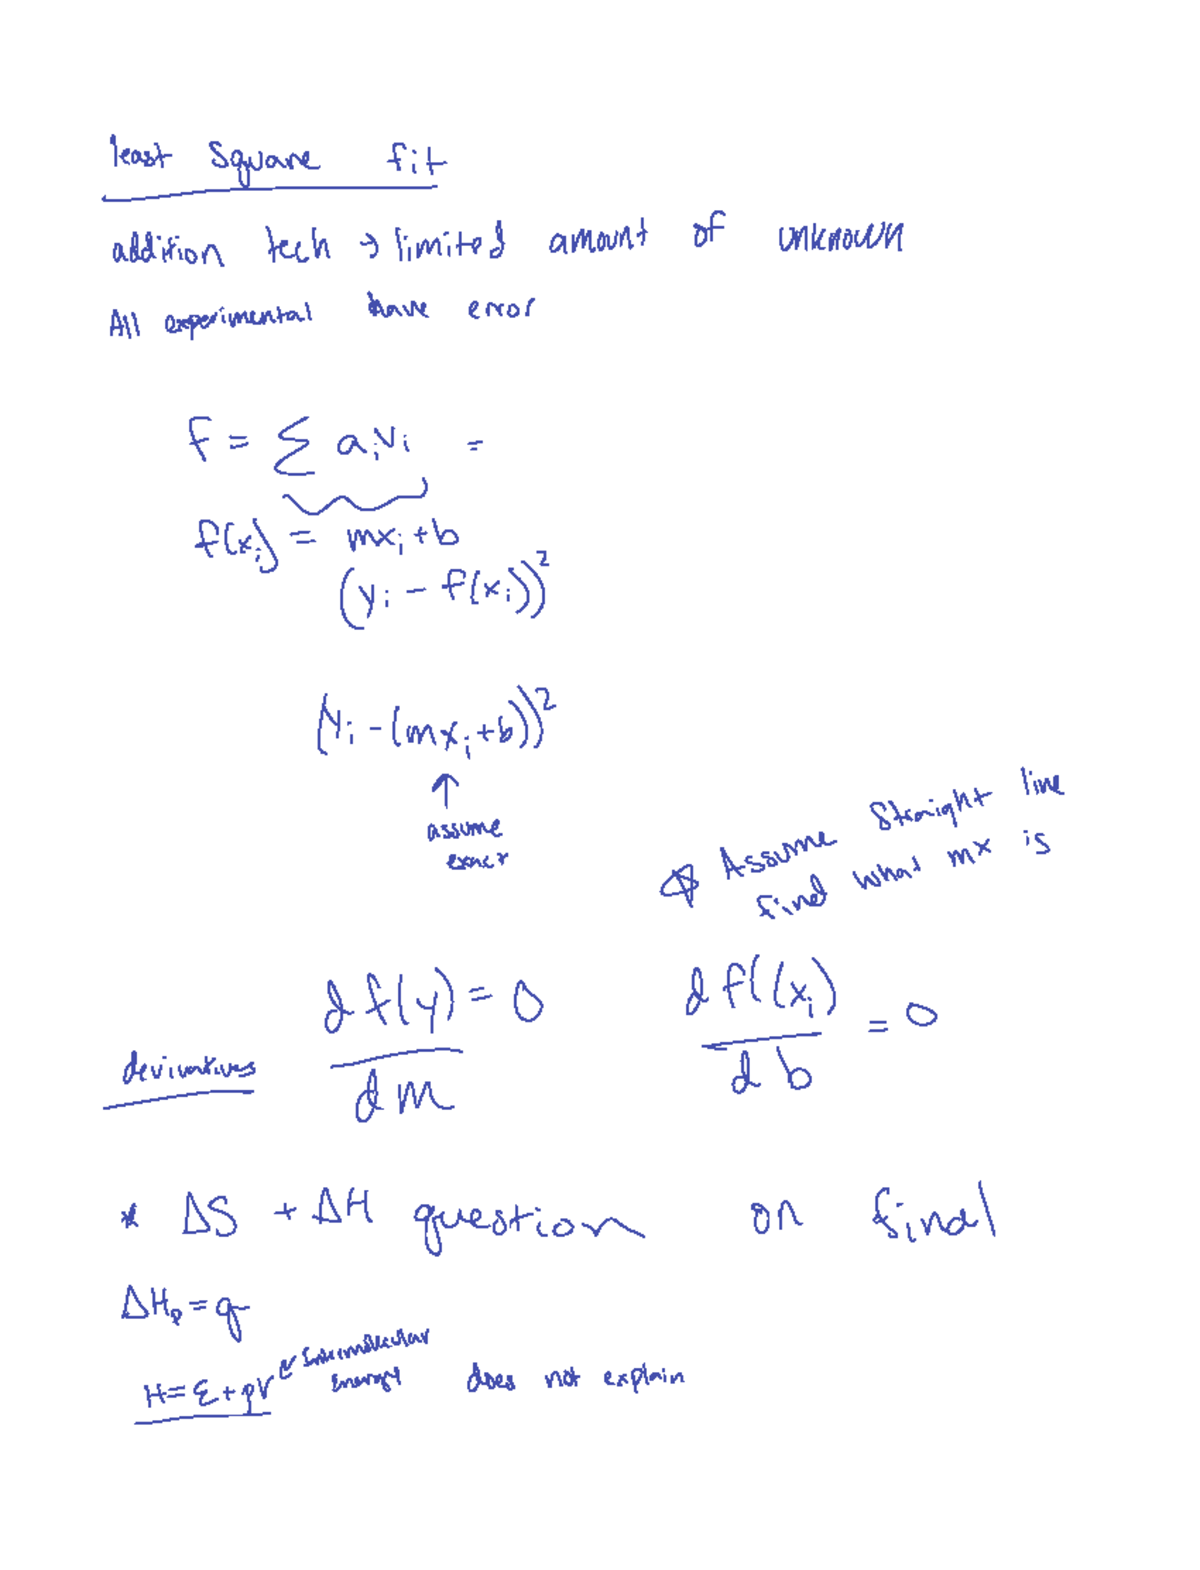 least Square fit
addition tech → limited amount of unknown
All experimental have error
F = Σ aᵢvᵢ =
f(xᵢ) = mxᵢ+b
(yᵢ - f(xᵢ))²
(yᵢ - (mxᵢ+b))²
↑
assume
exact
Assume Straight line
find what mx is
d f(y) = 0
d m
d f((xᵢ) = 0
d b
derivatives
* ΔS + ΔH question on final
ΔHₚ = q
H = ε + pV ↙ Intermolecular
Energy does not explain